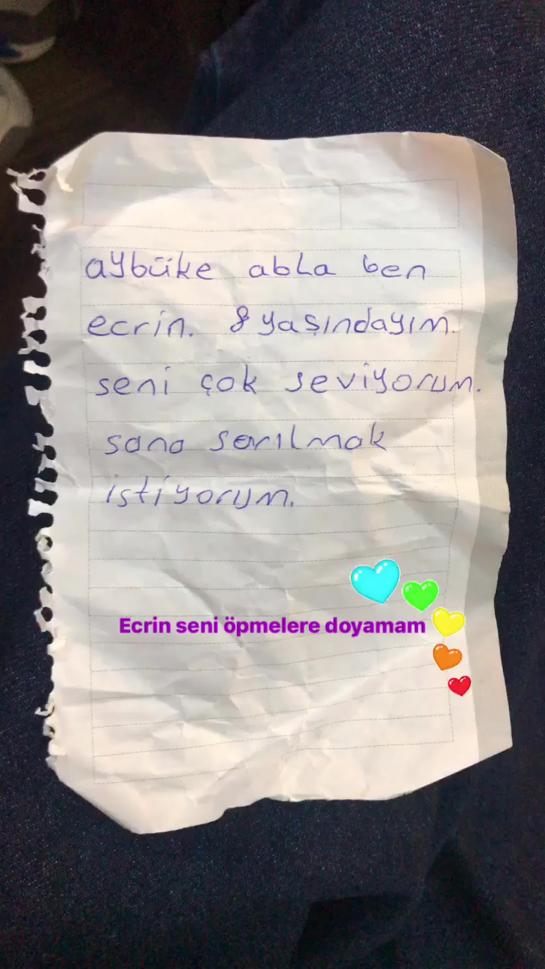 aybüke abla ben
ecrin. 8 yaşındayım.
seni çok seviyorum.
sana sarılmak
istiyorum.
Ecrin seni öpmelere doyamam